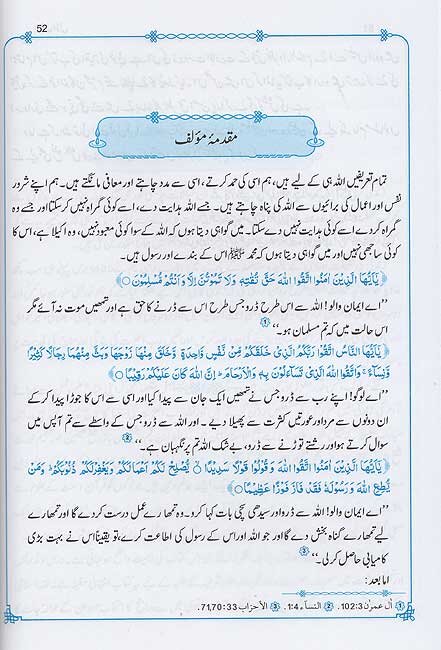 52
مقدمۂ مؤلف
تمام تعریفیں اللہ ہی کے لیے ہیں، ہم اسی کی حمد کرتے، اسی سے مدد چاہتے اور معافی مانگتے ہیں۔ ہم اپنے شرور
نفس اور اعمال کی برائیوں سے اللہ کی پناہ چاہتے ہیں۔ جسے اللہ ہدایت دے، اسے کوئی گمراہ نہیں کرسکتا اور جسے وہ
گمراہ کردے اسے کوئی ہدایت نہیں دے سکتا۔ میں گواہی دیتا ہوں کہ اللہ کے سوا کوئی معبود نہیں، وہ اکیلا ہے، اس کا
کوئی ساجھی نہیں اور میں گواہی دیتا ہوں کہ محمد ﷺ اس کے بندے اور رسول ہیں۔
﴿ يٰۤاَيُّهَا الَّذِيْنَ اٰمَنُوا اتَّقُوا اللّٰهَ حَقَّ تُقٰتِهٖ وَلَا تَمُوْتُنَّ اِلَّا وَاَنْتُمْ مُّسْلِمُوْنَ ○ ﴾
’’اے ایمان والو! اللہ سے اس طرح ڈرو جس طرح اس سے ڈرنے کا حق ہے اور تمھیں موت نہ آئے مگر
اس حالت میں کہ تم مسلمان ہو۔‘‘ ①
﴿ يٰۤاَيُّهَا النَّاسُ اتَّقُوْا رَبَّكُمُ الَّذِيْ خَلَقَكُمْ مِّنْ نَّفْسٍ وَّاحِدَةٍ وَّخَلَقَ مِنْهَا زَوْجَهَا وَبَثَّ مِنْهُمَا رِجَالًا كَثِيْرًا
وَّنِسَآءً ۚ وَاتَّقُوا اللّٰهَ الَّذِيْ تَسَآءَلُوْنَ بِهٖ وَالْاَرْحَامَ ؕ اِنَّ اللّٰهَ كَانَ عَلَيْكُمْ رَقِيْبًا ○ ﴾
’’اے لوگو! اپنے رب سے ڈرو جس نے تمھیں ایک جان سے پیدا کیا اور اسی سے اس کا جوڑا پیدا کرکے
ان دونوں سے مرد اور عورتیں کثرت سے پھیلا دیے۔ اور اللہ سے ڈرو جس کے واسطے سے تم آپس میں
سوال کرتے ہو اور رشتے توڑنے سے ڈرو، بے شک اللہ تم پر نگہبان ہے۔‘‘ ②
﴿ يٰۤاَيُّهَا الَّذِيْنَ اٰمَنُوا اتَّقُوا اللّٰهَ وَقُوْلُوْا قَوْلًا سَدِيْدًا ○ يُّصْلِحْ لَكُمْ اَعْمَالَكُمْ وَيَغْفِرْ لَكُمْ ذُنُوْبَكُمْ ؕ وَمَنْ
يُّطِعِ اللّٰهَ وَرَسُوْلَهٗ فَقَدْ فَازَ فَوْزًا عَظِيْمًا ○ ﴾
’’اے ایمان والو! اللہ سے ڈرو اور سیدھی سچی بات کہا کرو۔ وہ تمھارے عمل درست کردے گا اور تمھارے
لیے تمھارے گناہ بخش دے گا اور جو اللہ اور اس کے رسول کی اطاعت کرے، تو یقیناً اس نے بہت بڑی
کامیابی حاصل کرلی۔‘‘ ③
اما بعد:
① اٰل عمرٰن 102:3. ② النسآء 1:4. ③ الأحزاب 71,70:33.